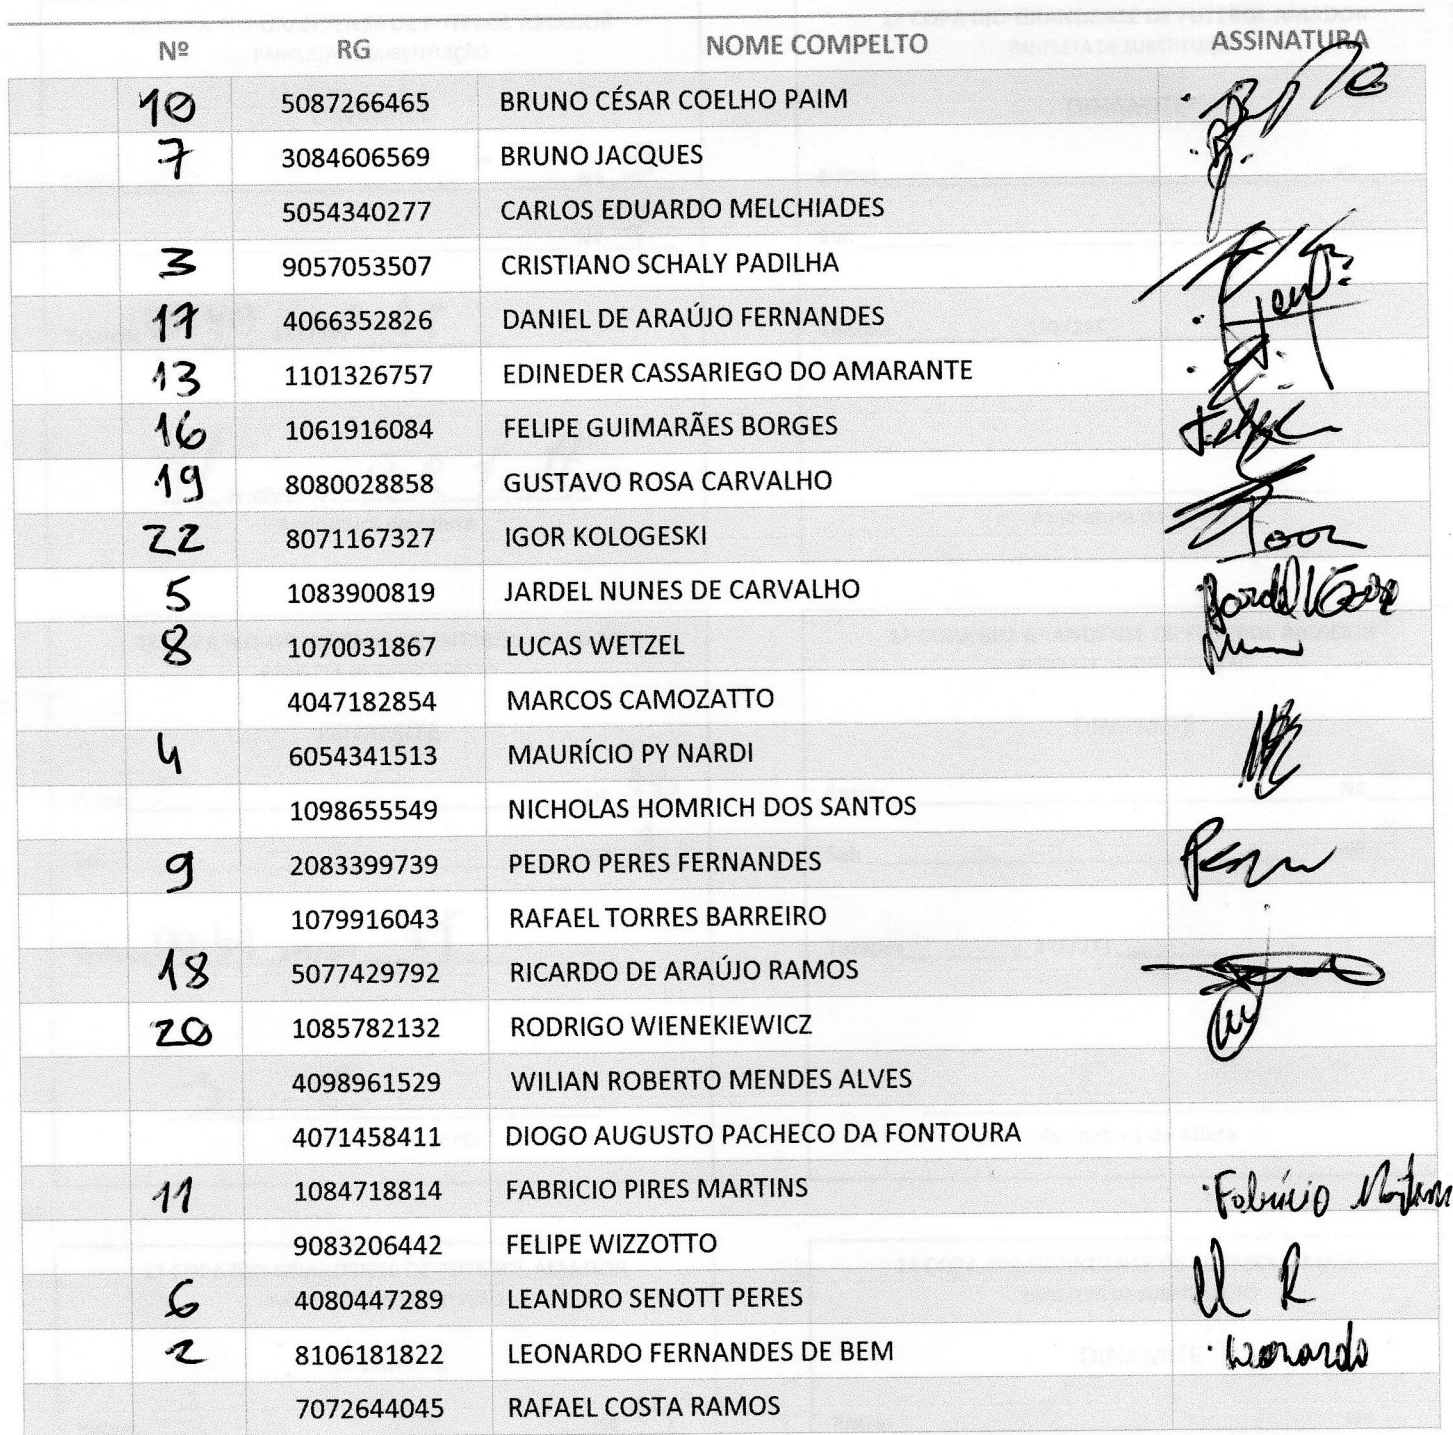 Nº RG NOME COMPELTO ASSINATURA
10 5087266465 BRUNO CÉSAR COELHO PAIM
7 3084606569 BRUNO JACQUES
5054340277 CARLOS EDUARDO MELCHIADES
3 9057053507 CRISTIANO SCHALY PADILHA
17 4066352826 DANIEL DE ARAÚJO FERNANDES
13 1101326757 EDINEDER CASSARIEGO DO AMARANTE
16 1061916084 FELIPE GUIMARÃES BORGES
19 8080028858 GUSTAVO ROSA CARVALHO
22 8071167327 IGOR KOLOGESKI Igor
5 1083900819 JARDEL NUNES DE CARVALHO Jardel
8 1070031867 LUCAS WETZEL
4047182854 MARCOS CAMOZATTO
4 6054341513 MAURÍCIO PY NARDI
1098655549 NICHOLAS HOMRICH DOS SANTOS
9 2083399739 PEDRO PERES FERNANDES
1079916043 RAFAEL TORRES BARREIRO
18 5077429792 RICARDO DE ARAÚJO RAMOS
20 1085782132 RODRIGO WIENEKIEWICZ
4098961529 WILIAN ROBERTO MENDES ALVES
4071458411 DIOGO AUGUSTO PACHECO DA FONTOURA
11 1084718814 FABRICIO PIRES MARTINS Fabrício Martins
9083206442 FELIPE WIZZOTTO
6 4080447289 LEANDRO SENOTT PERES
2 8106181822 LEONARDO FERNANDES DE BEM Leonardo
7072644045 RAFAEL COSTA RAMOS